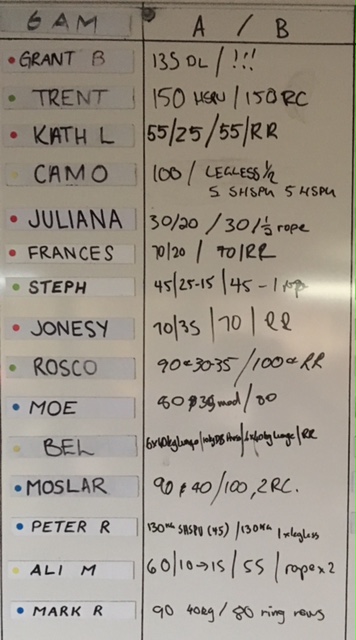 6AM A / B
GRANT B 135 DL / !!!
TRENT 150 HSPU / 150 RC
KATH L 55/25/55/RR
CAMO 100 / LEGLESS 1/2
5 SHSPU 5 HSPU
JULIANA 30/20 / 30/ 1/2 rope
FRANCES 70/20 / 70/RR
STEPH 45/25-15 / 45 - 1
JONESY 70/35 / 70 / RR
ROSCO 90 30-35 / 100 RR
MOE 80 mod / 80
BEL 6x40kg Lunge / / 6x40kg Lunge / RR
MOSLAR 90 & 40/100, 2RC.
PETER R 130KG SHSPU (45) / 130KG 1xlegless
ALI M 60/10→15 / 55 / rope x 2
MARK R 90 40kg / 80 ring rows